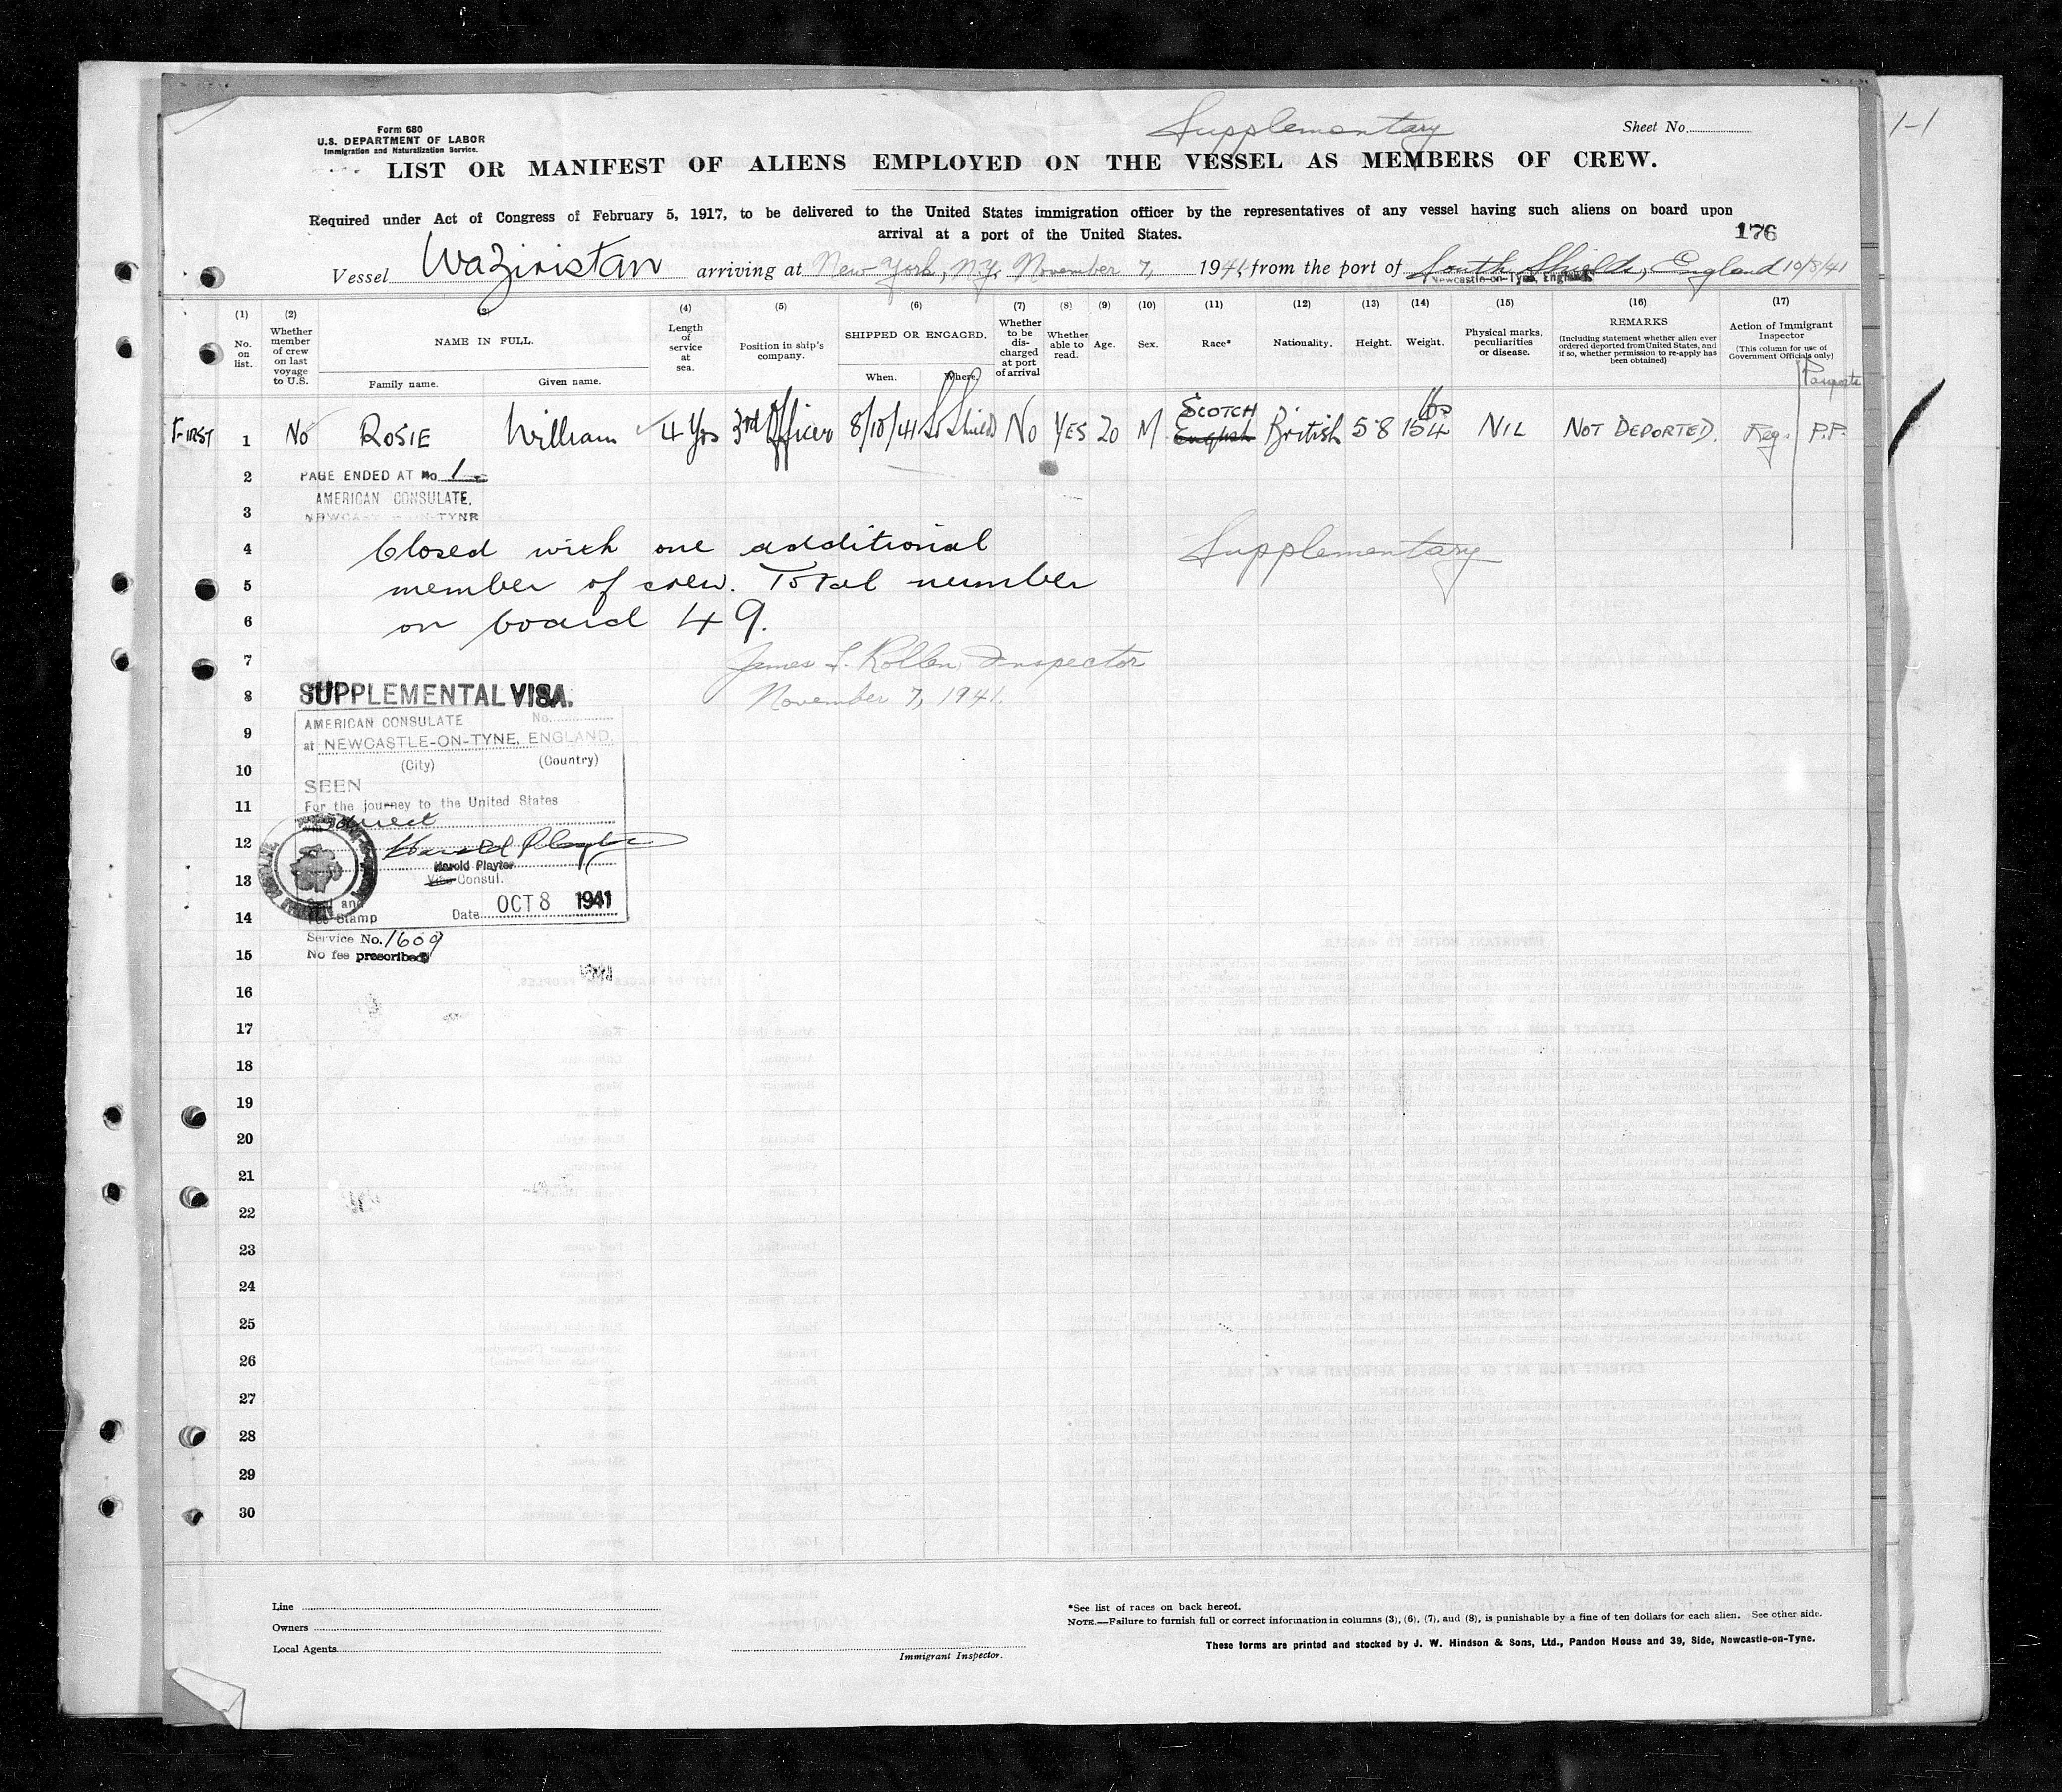 Supplementary
Form 680
U.S. DEPARTMENT OF LABOR
Immigration and Naturalization Service.
Sheet No.
1-1
LIST OR MANIFEST OF ALIENS EMPLOYED ON THE VESSEL AS MEMBERS OF CREW.
Required under Act of Congress of February 5, 1917, to be delivered to the United States immigration officer by the representatives of any vessel having such aliens on board upon
arrival at a port of the United States.
176
Vessel Waziristan arriving at New York, N.Y. November 7, 1941, from the port of South Shields, England 10/8/41
Newcastle-on-Tyne, England.
(1) No. on list.
(2) Whether member of crew on last voyage to U.S.
(3) NAME IN FULL. Family name. Given name.
(4) Length of service at sea.
(5) Position in ship's company.
(6) SHIPPED OR ENGAGED. When. Where.
(7) Whether to be discharged at port of arrival
(8) Whether able to read.
(9) Age.
(10) Sex.
(11) Race*
(12) Nationality.
(13) Height.
(14) Weight.
(15) Physical marks, peculiarities or disease.
(16) REMARKS (Including statement whether alien ever ordered deported from United States, and if so, whether permission to re-apply has been obtained)
(17) Action of Immigrant Inspector (This column for use of Government Officials only)
Passports
FIRST 1 No ROSIE William 4 Yrs 3rd Officer 8/10/41 So Shields No YES 20 M. SCOTCH English British 5 8 154 lbs NIL NOT DEPORTED. Reg. P.P.
2 PAGE ENDED AT No. 1
AMERICAN CONSULATE,
3 NEWCASTLE-ON-TYNE
4 Closed with one additional Supplementary
5 member of crew. Total number
6 on board 49.
7 James L. Rollen Inspector
8 November 7, 1941.
SUPPLEMENTAL VISA.
AMERICAN CONSULATE No.
9 at NEWCASTLE-ON-TYNE, ENGLAND.
10 (City) (Country)
SEEN
11 For the journey to the United States
via direct
12 Harold Playter
Harold Playter
13 Vice Consul.
Seal and
14 Fee Stamp Date OCT 8 1941
Service No. 1609
15 No fee prescribed
16
17
18
19
20
21
22
23
24
25
26
27
28
29
30
Line
Owners
Local Agents
Immigrant Inspector.
*See list of races on back hereof.
NOTE.—Failure to furnish full or correct information in columns (3), (6), (7), and (8), is punishable by a fine of ten dollars for each alien. See other side.
These forms are printed and stocked by J. W. Hindson & Sons, Ltd., Pandon House and 39, Side, Newcastle-on-Tyne.